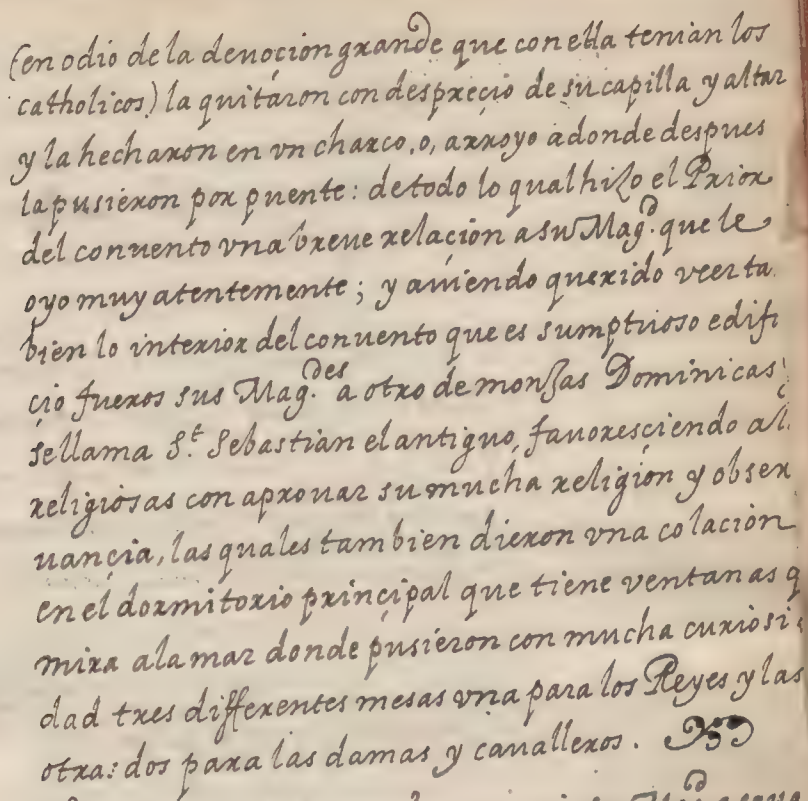 (en odio de la deuoçion grande que con ella tenian los
catholicos) la quitaron con despreçio de su capilla y altar
y la hecharon en vn charco, o, arroyo adonde despues
la pusieron por puente: de todo lo qual hizo el Prior
del conuento vna breue relaçion a su Mag.d que le
oyo muy atentemente; y auiendo querido veer ta
bien lo interior del conuento que es sumptuoso edifi
çio fueros sus Mag.des a otro de monjas Dominicas
se llama S.t Sebastian el antiguo, fauoresçiendo al
religiosas con aprouar su mucha religion y obser
uançia, las quales tambien dieron vna colaçion
en el dormitorio prinçipal que tiene ventanas q
mira a la mar donde pusieron con mucha curiosi
dad tres differentes mesas vna para los Reyes y las
otra: dos para las damas y caualleros.